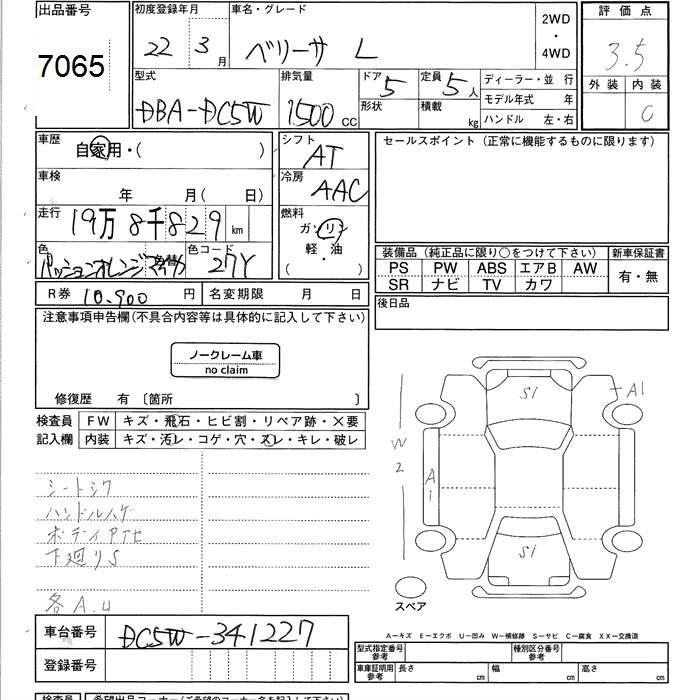 出品番号
初度登録年月
車名・グレード
2WD
・
4WD
評価点
7065
22 3月
ベリーサ L
3.5
外装 内装
C
型式
DBA-DC5W
排気量
1500 cc
ドア 5
形状
定員 5人
積載 kg
ディーラー・並 行
モデル年式 年
ハンドル 左・右
車歴
自家用・( )
シフト
AT
セールスポイント(正常に機能するものに限ります)
車検
年 月(日)
冷房
AAC
走行
19万8千829km
燃料
ガソリン
軽・油
( )
色
パッションオレンジマイカ
色コード
27Y
装備品(純正品に限り○をつけて下さい)
新車保証書
PS PW ABS エアB AW
SR ナビ TV カワ
有・無
R券 10,900円
名変期限 月 日
後日品
注意事項申告欄(不具合内容等は具体的に記入して下さい)
ノークレーム車
no claim
修復歴 有〔箇所 〕
検査員
記入欄
FW キズ・飛石・ヒビ割・リペア跡・×要
内装 キズ・汚レ・コゲ・穴・スレ・キレ・破レ
シートシワ
ハンドルスケ
ボディPTセ
下廻りS
各A.U
Si
A1
W2
A1
Si
スペア
車台番号
DC5W-341227
登録番号
A―キズ E―エクボ U―凹み W―補修跡 S―サビ C―腐食 XX―交換済
型式指定番号
参考
種別区分番号
参考
車庫証明用
参考
長さ cm
幅 cm
高さ cm
検査員
希望出品コーナー(ご希望のコーナー名を記入下さい)